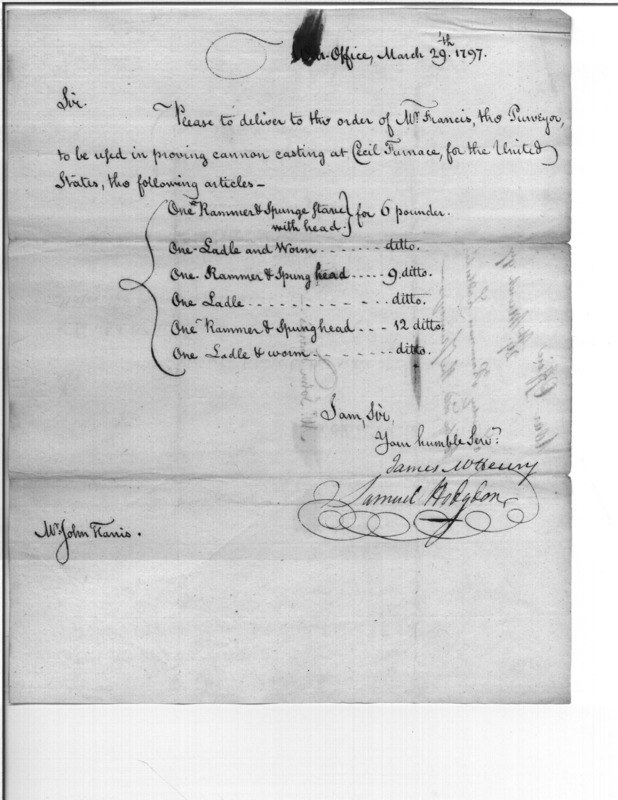 War-Office, March 29th. 1797.
Sir.
Please to deliver to the order of Mr. Francis, the Purveyor,
to be used in proving cannon casting at Cecil Furnace, for the United
States, the following articles—
One Rammer & Spunge Stave
with head.} for 6 pounder.
One Ladle and Worm . . . . . . . ditto.
One Rammer & Spung head . . . . 9 ditto.
One Ladle . . . . . . . . . . ditto.
One Rammer & Spung head . . . 12 ditto.
One Ladle & worm . . . . . . . ditto.
I am, Sir,
Your humble Servt.
James McHenry
Samuel Hodgdon
Mr. John Harris.